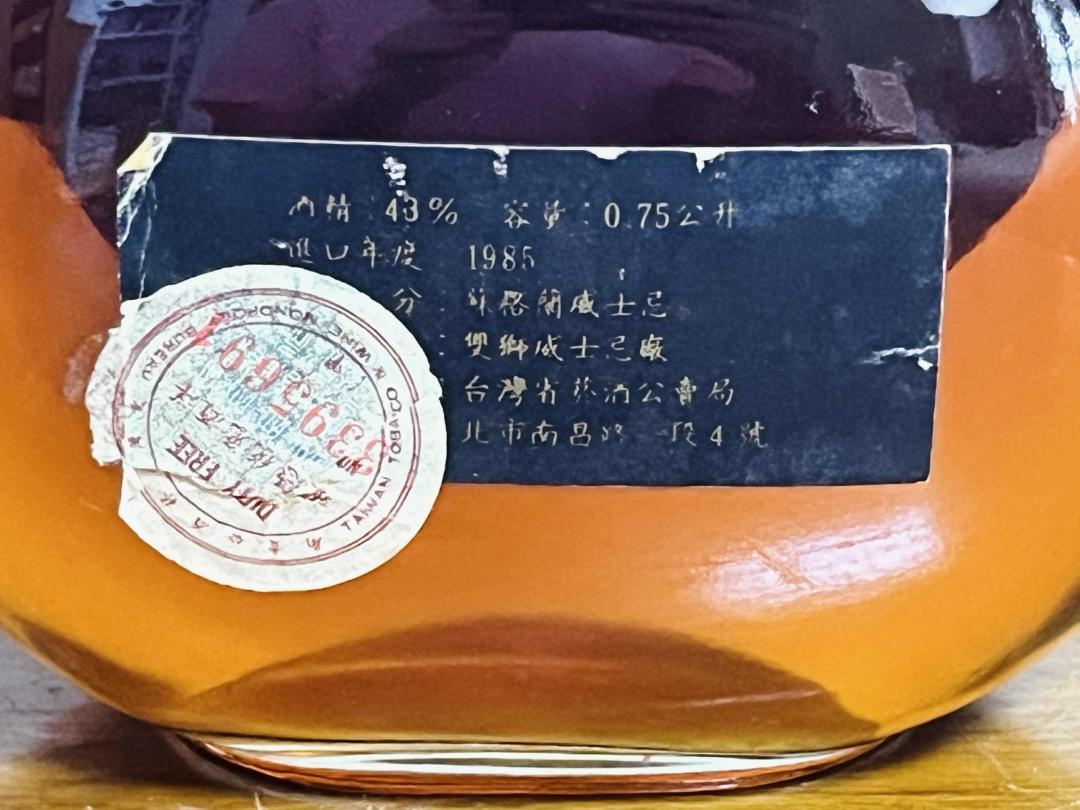 內精:43% 容量:0.75公升
進口年度 1985
分:蘇格蘭威士忌
:雙獅威士忌廠
台灣省菸酒公賣局
北市南昌路一段4號
TAIWAN TOBACCO & WINE MONOPOLY BUREAU
DUTY FREE